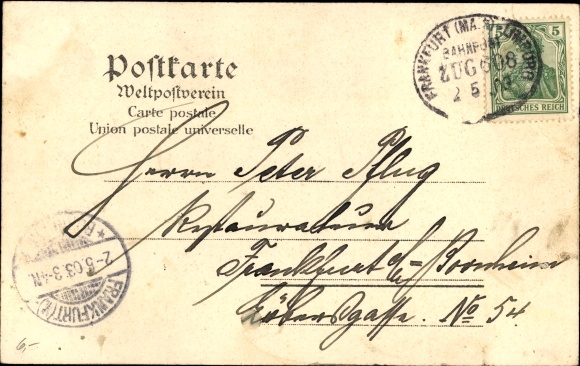 Postkarte
Weltpostverein
Carte postale
Union postale universelle
FRANKFURT (MA.N)-LIMBURG
BAHNPOST
ZUG 608
2 5 03
5
DEUTSCHES REICH
Herrn Peter Pflug
Restaurateur
Frankfurt a/-Bornheim
No 54
FRANKFURT
2-5.03.3-4N.
6,-